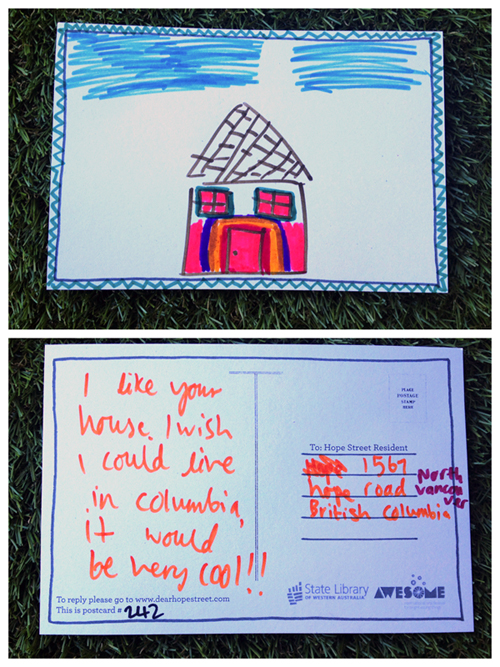 I like your
house. I wish
I could live
in columbia,
it would
be very cool!!!
PLACE
POSTAGE
STAMP
HERE
To: Hope Street Resident
1567
hope road
British Columbia
North
Vancou
ver
To reply please go to www.dearhopestreet.com
This is postcard # 242
State Library
OF WESTERN AUSTRALIA
AWESOME